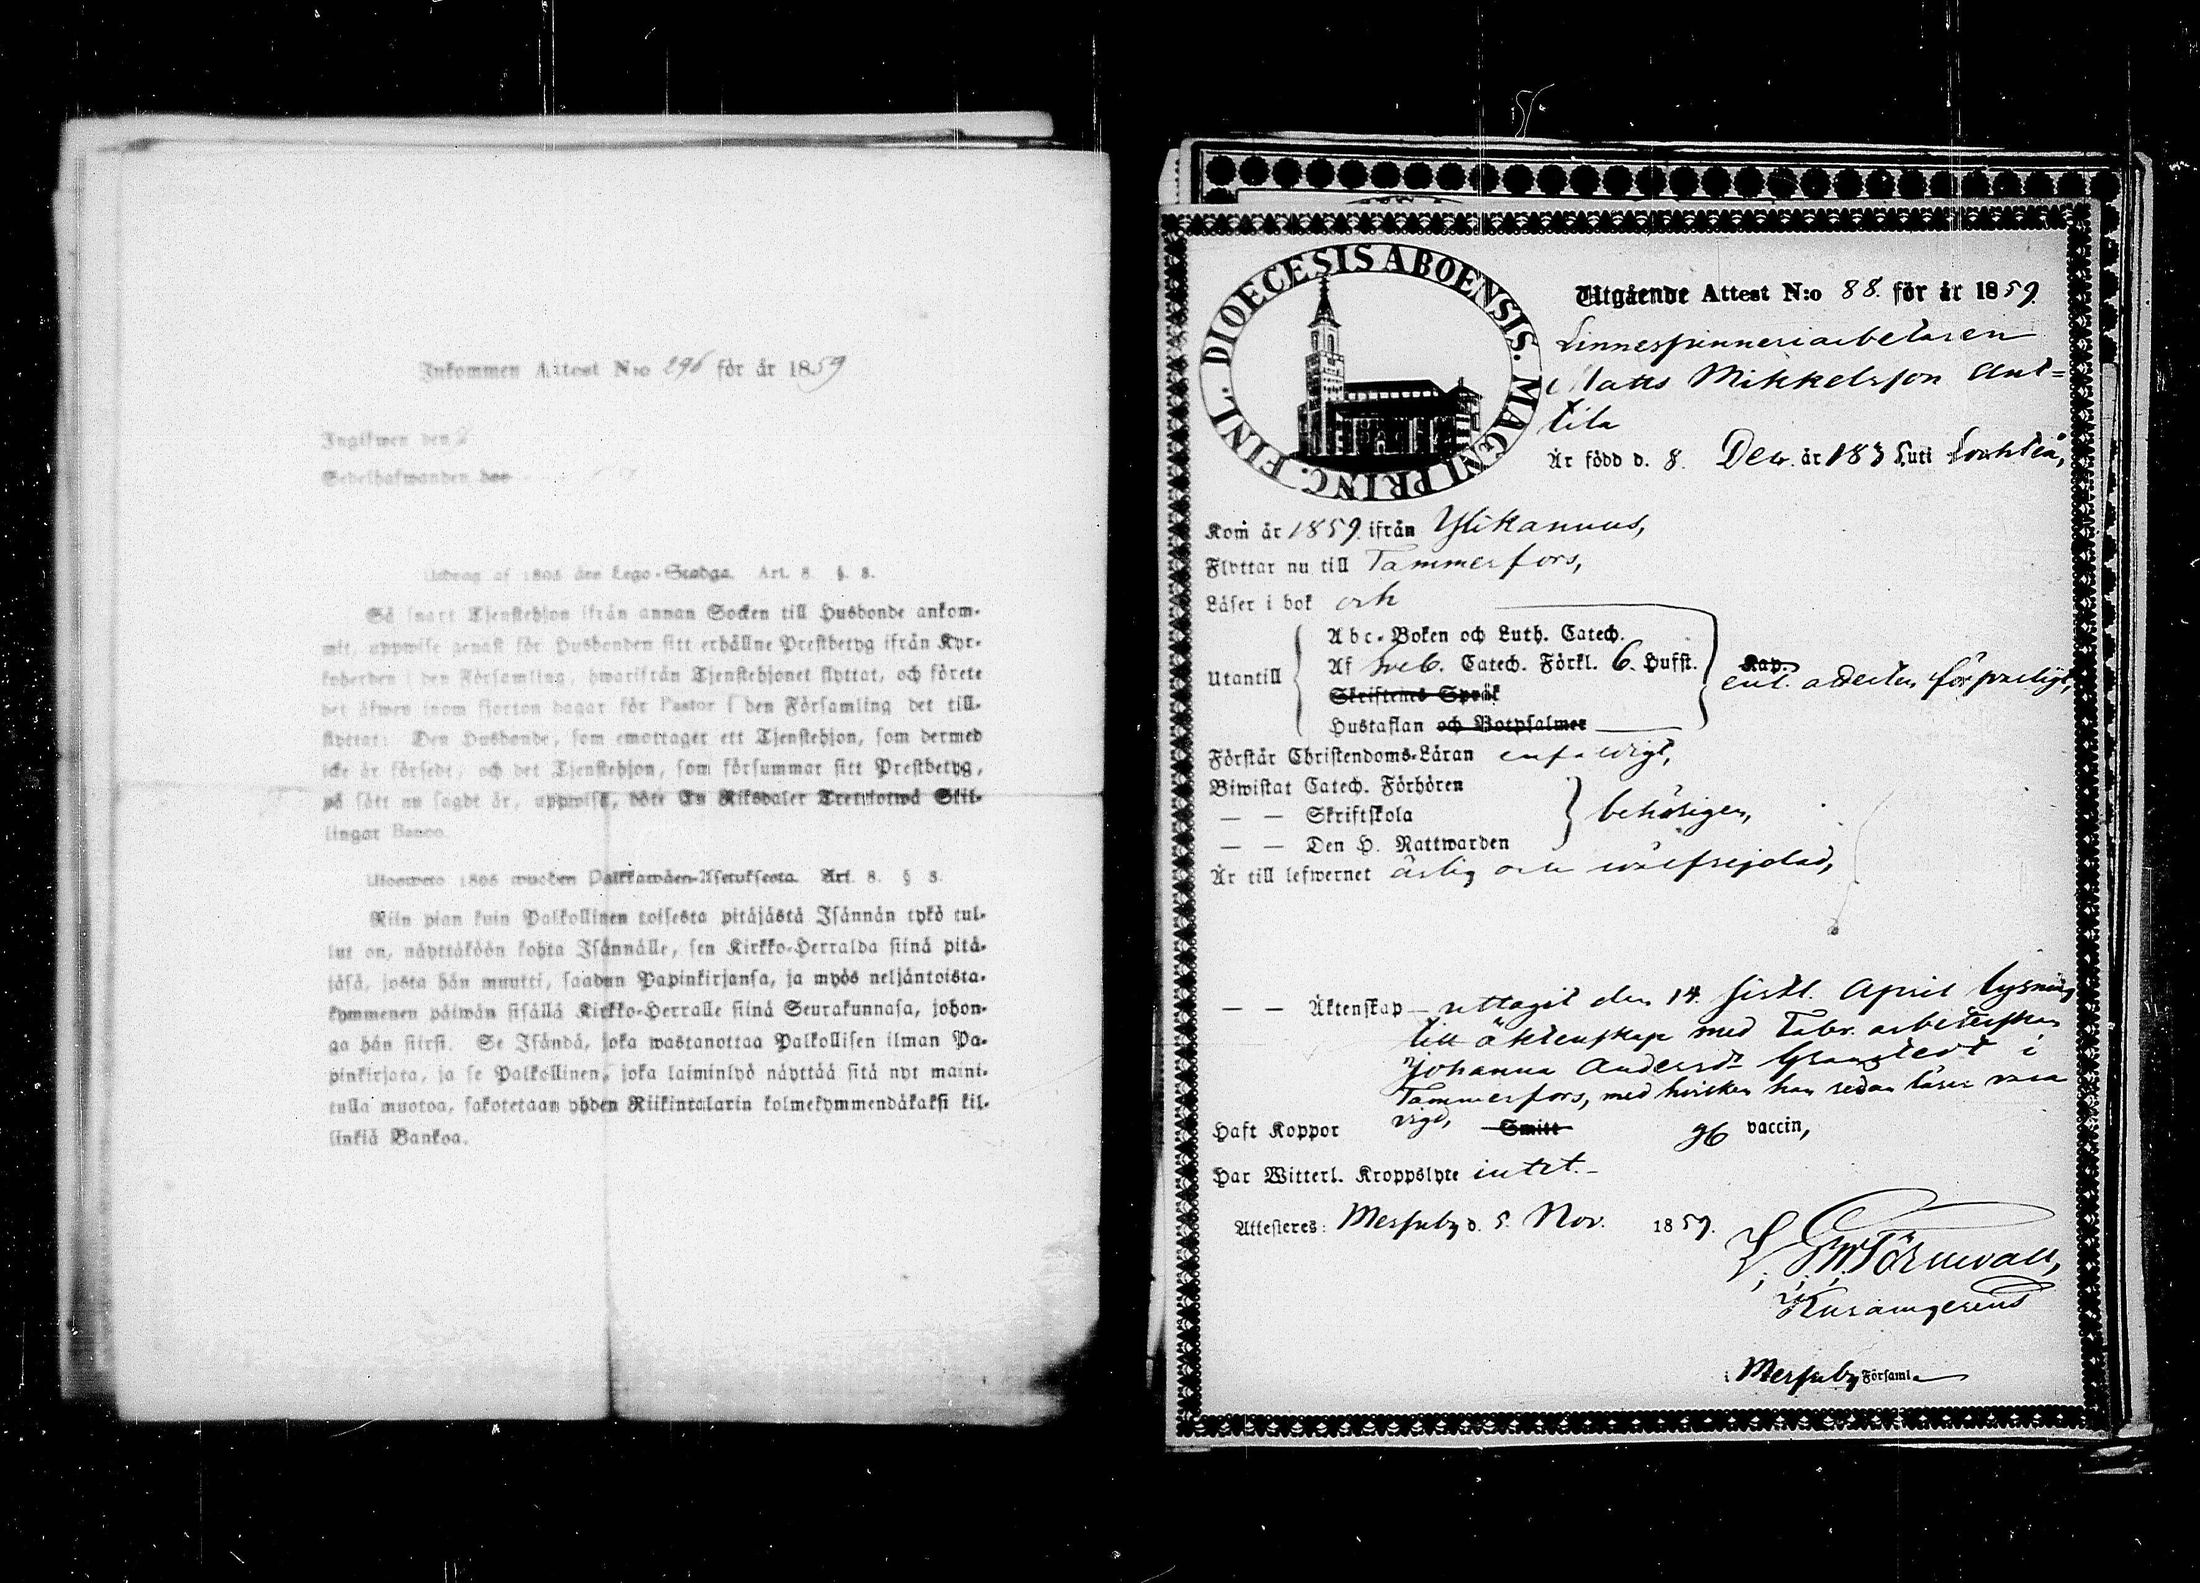 Inkommen Attest N:o 296 för år 1859
Ingifwen den 2
Sedelhafwanden bor
Utdrag af 1805 års Lego-Stadga. Art. 8. §. 8.
Så snart Tjenstehjon ifrån annan Socken till Husbonde ankom-
mit, uppwise genast för Husbonden sitt erhållne Prestbetyg ifrån Kyr-
koherden i den Församling, hwarifrån Tjenstehjonet flyttat, och förete
det äfwen inom fjorton dagar för Pastor i den Församling det till-
flyttat: Den Husbonde, som emottager ett Tjenstehjon, som dermed
icke är försedt, och det Tjenstehjon, som försummar sitt Prestbetyg,
på sätt nu sagdt är, uppwisa, böte En Riksdaler Trettiotwå Skil-
lingar Banco.
Ulosweto 1805 wuoden Palkkawäen-Asetuksesta. Art. 8. § 8.
Niin pian kuin Palkollinen toisesta pitäjästä Isännän tykö tul-
lut on, näyttäköön kohta Isännälle, sen Kirkko-Herralda siinä pitä-
jäsä, josta hän muutti, saadun Papinkirjansa, ja myös neljäntoista-
kymmenen päiwän sisällä Kirkko-Herralle siinä Seurakunnasa, johon-
ga hän siirsi. Se Isändä, joka wastanottaa Palkollisen ilman Pa-
pinkirjata, ja se Palkollinen, joka laiminlyö näyttää sitä nyt maini-
tulla muotoa, sakotetaan yhden Riikintalarin kolmekymmendäkaksi kil-
linkiä Bankoa.
DIOECESIS ABOENSIS. MAGNI PRINC. FINL.
Utgående Attest N:o 88. för år 1859.
Linnespinneriarbetaren
Matts Mikkelsson Ant=
tila
Är född d. 8. Decr. år 183 uti Lochteå,
Kom år 1859. ifrån Ylikannus,
Flyttar nu till Tammerfors,
Läser i bok och
Utantill
Abc-Boken och Luth. Catech.
Af Sveb. Catech. Förkl. 6. Hufst.
Skriftenes Språk
Hustaflan och Botpsalmer
Kap.
enl. försvarligt,
Förstår Christendoms-Läran enfaldigt,
Biwistat Catech. Förhören
— — Skriftskola
— — Den H. Nattwarden
behörigen,
Är till lefwernet ärlig och wälfrejdad,
— — Äktenskap uttagit den 14. sistl. April lysning
till äktenskap med Fabr. arbeterskan
Johanna Andersdr Granstedt i
Tammerfors, med hvilken han sedan lärer vara
vigd,
Haft Koppor Smitt gh vaccin,
Har Witterl. Kroppslyte intet.
Attesteres: Messuby d. 5. Nov. 1859.
Törnwall,
i Messuby Församl.